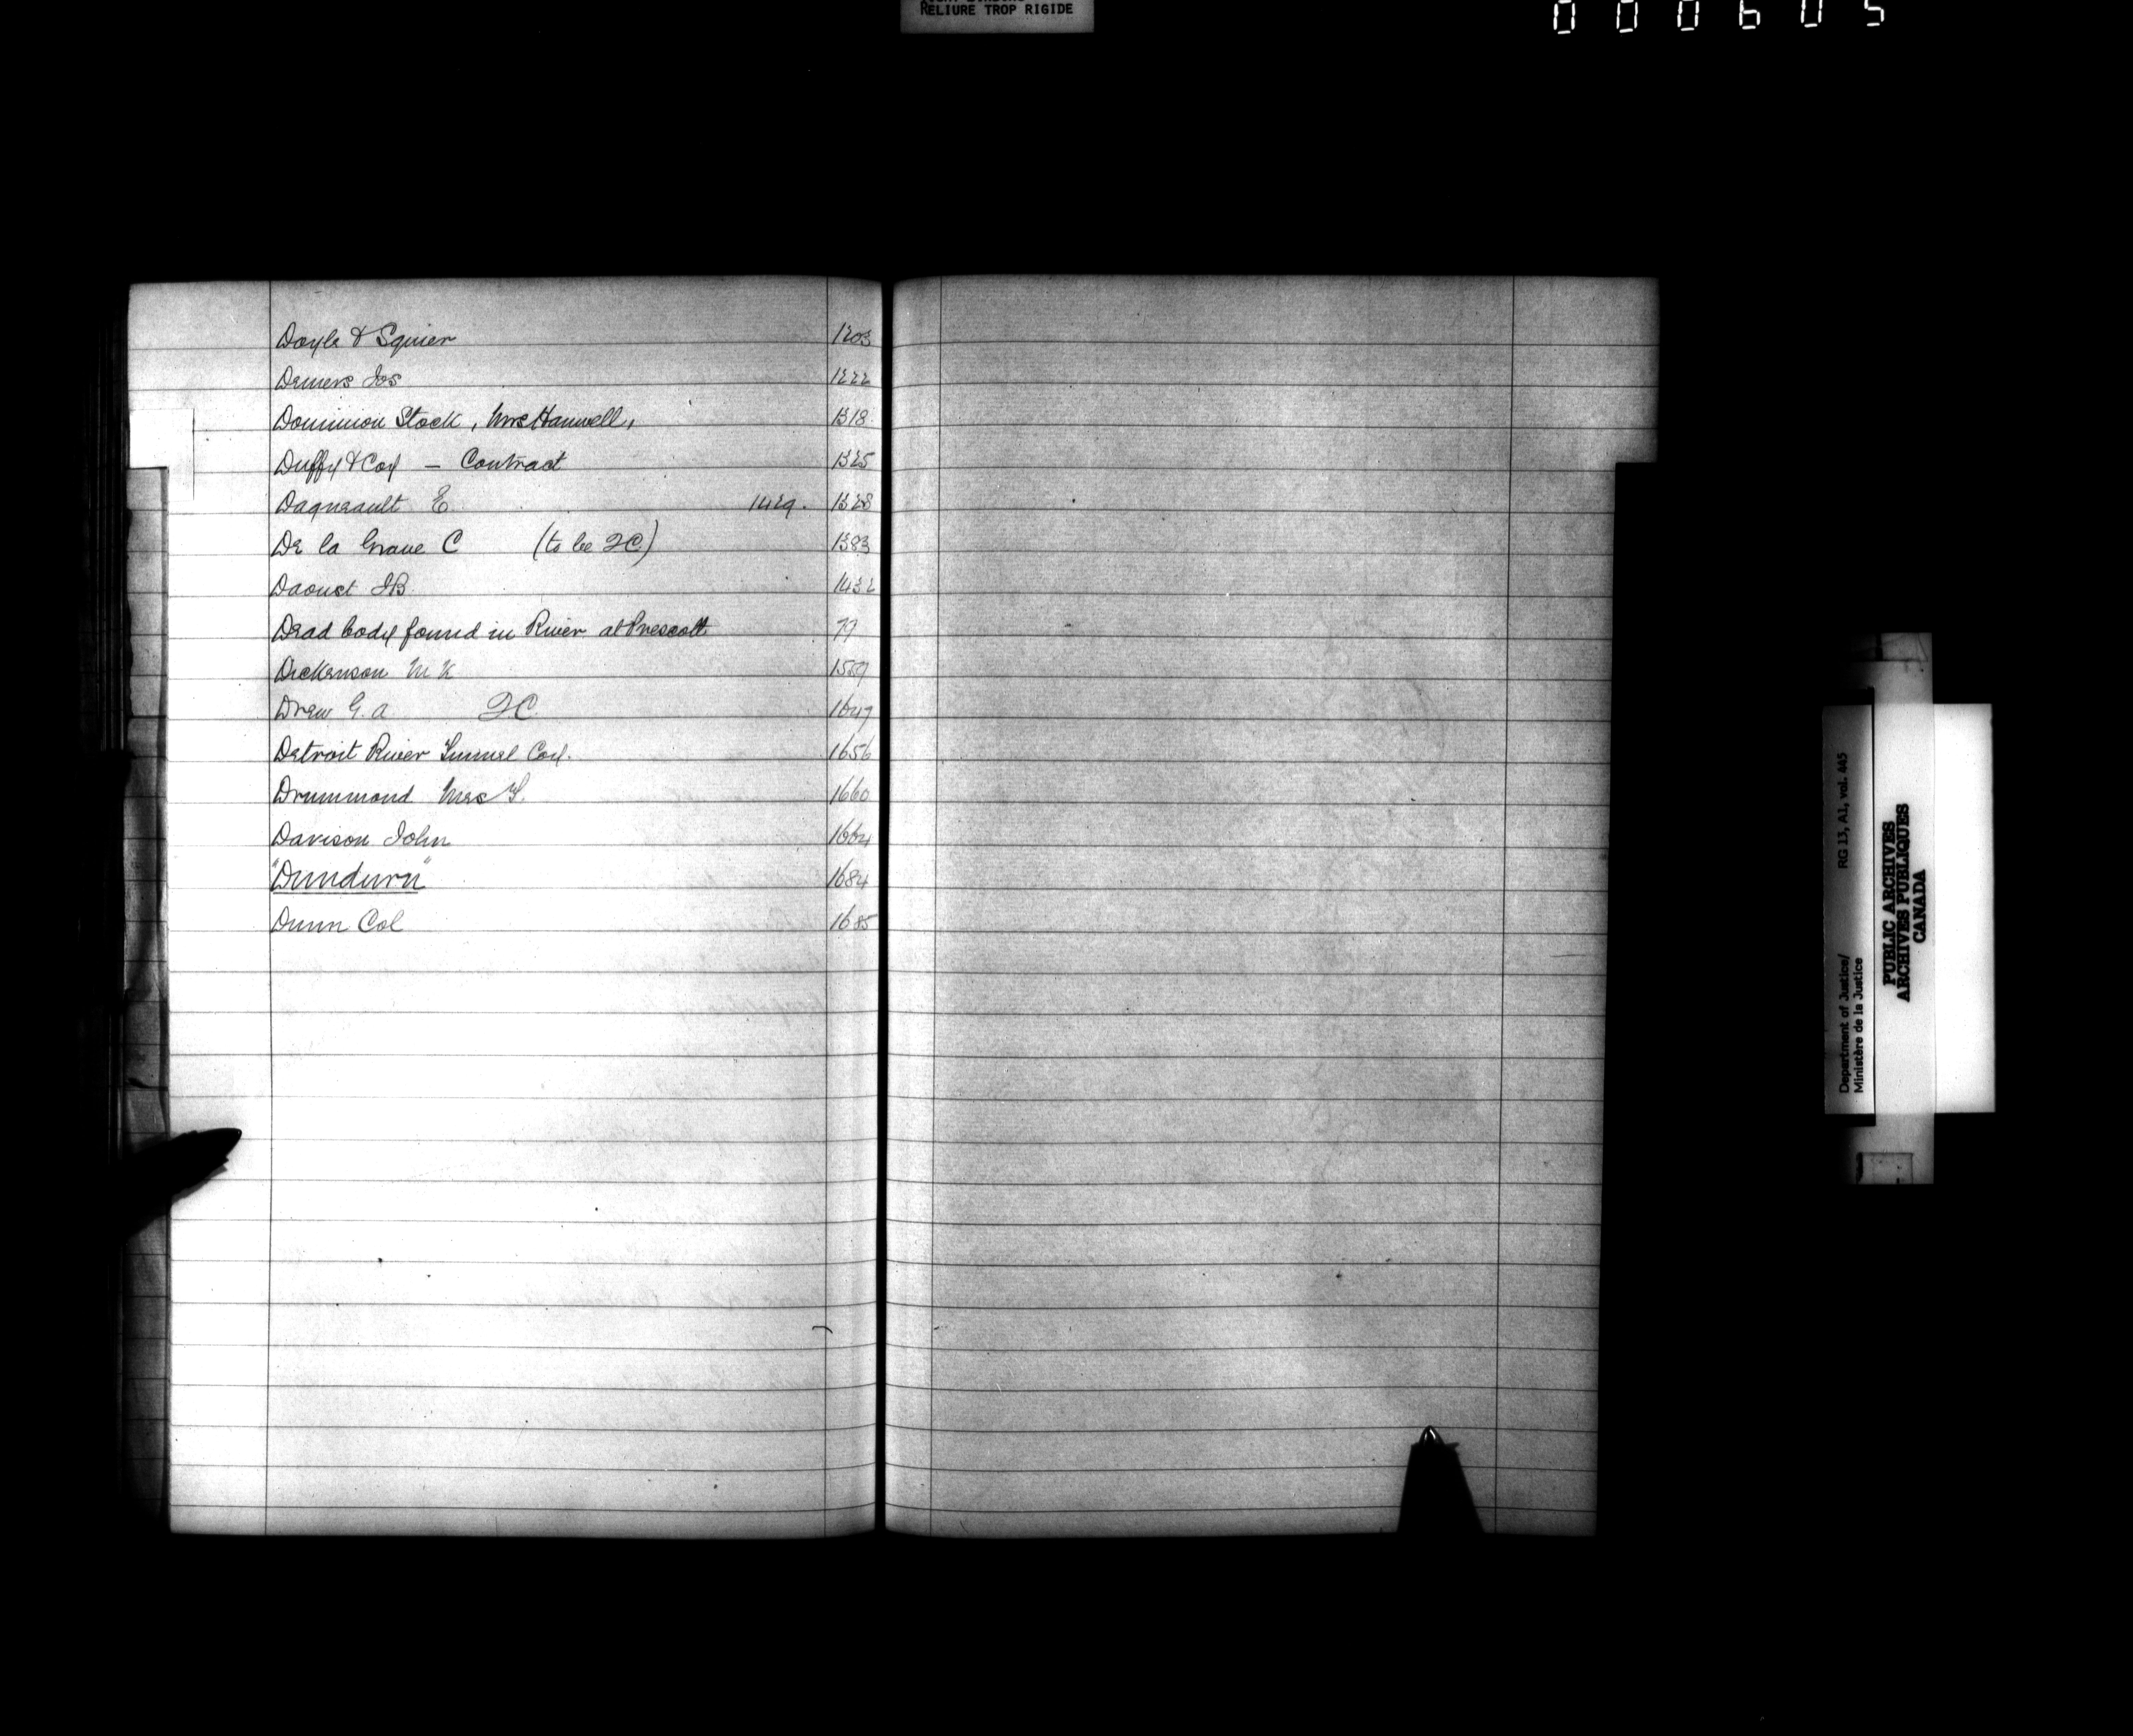 RELIURE TROP RIGIDE
000605
Doyle & Squier 1203
Demers Jos 1222
Dominion Stock, Mrs Hanwell, 1318
Duffy & Coy — Contract 1325
Dagneault E 1429. 1328
De la Grave C (to be QC) 1383
Daoust JB 1432
Dead body found in River at Prescott 77
Dickenson M K
Drew G. A QC 1647
Detroit River Tunnel Coy. 1656
Drummond Mrs T. 1660
Davison John 1664
"Dundurn" 1684
Dunn Col 1685
Department of Justice/ RG 13, A1, vol. 445
Ministère de la Justice
PUBLIC ARCHIVES
ARCHIVES PUBLIQUES
CANADA